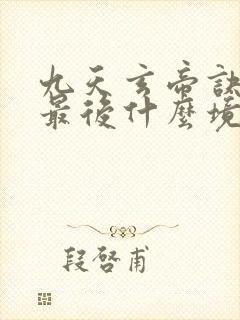 九天玄帝訣
最後什麼境
段啓甫